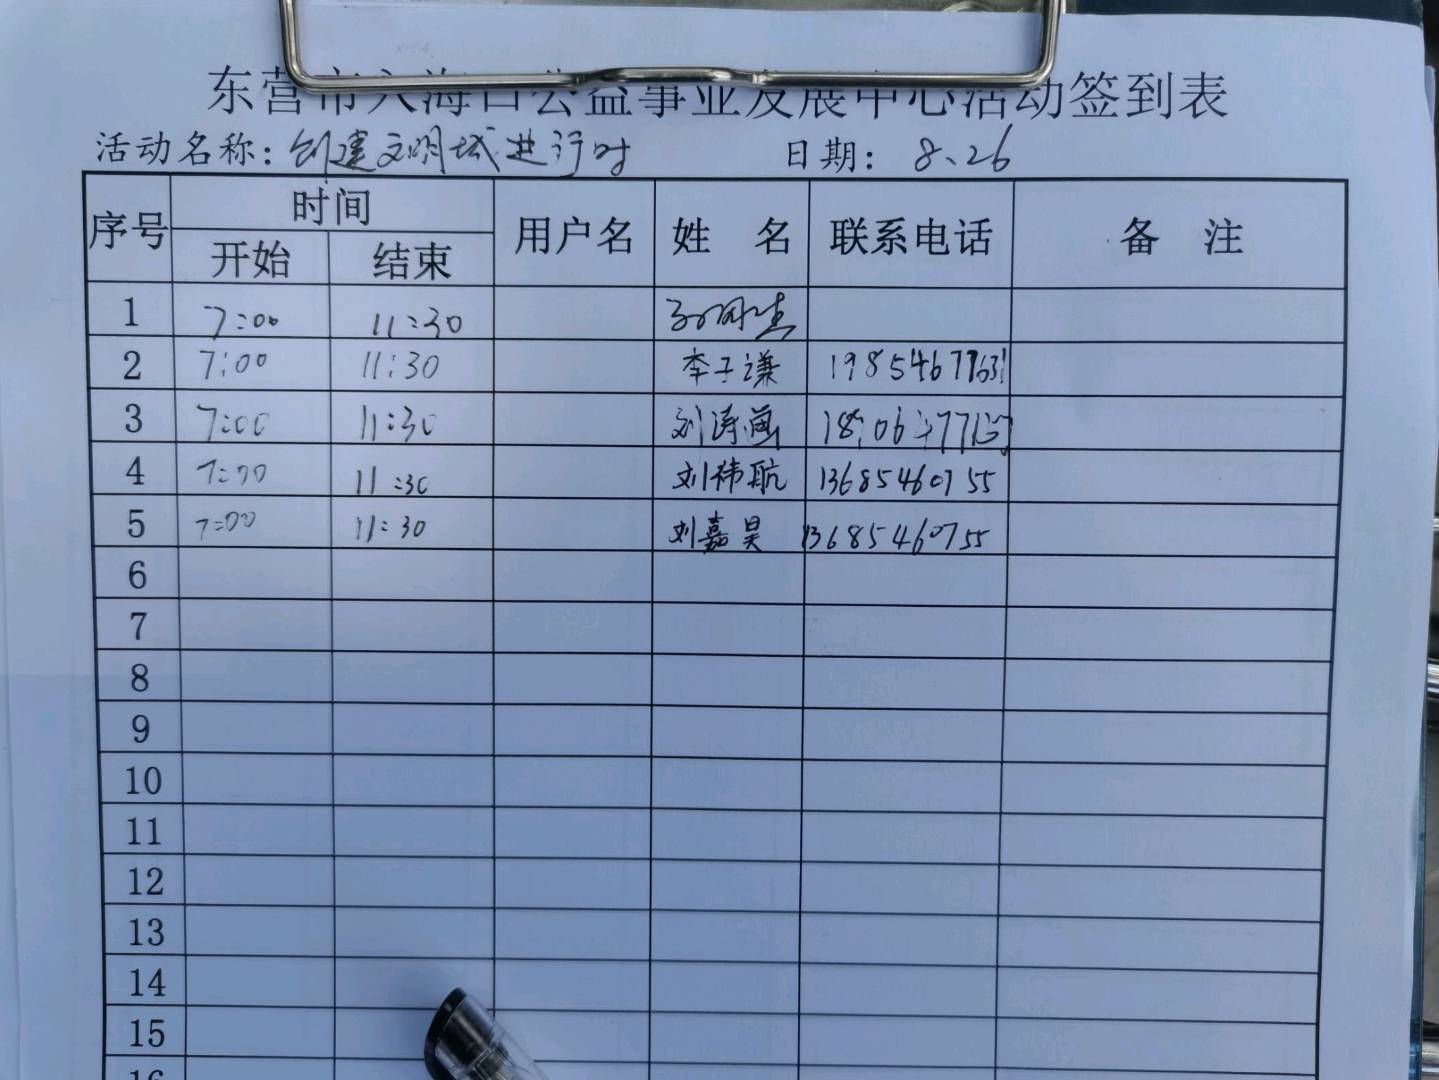 东营市入海口公益事业发展中心活动签到表
活动名称：创建文明城进行时 日期：8、26
序号 时间 用户名 姓 名 联系电话 备 注
开始 结束
1 7:00 11:30
2 7:00 11:30 李子谦
3 7:00 11:30
4 7:00 11:30 刘祎航 13685460755
5 7:00 11:30 刘嘉昊 13685460755
6
7
8
9
10
11
12
13
14
15
16